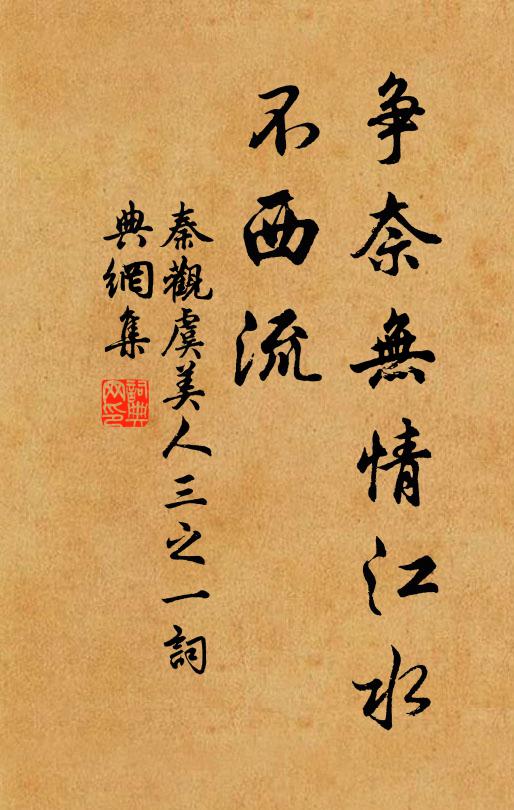 争奈無情江水
不西流
秦觀虞美人三之一詞
典網集
詞典網印